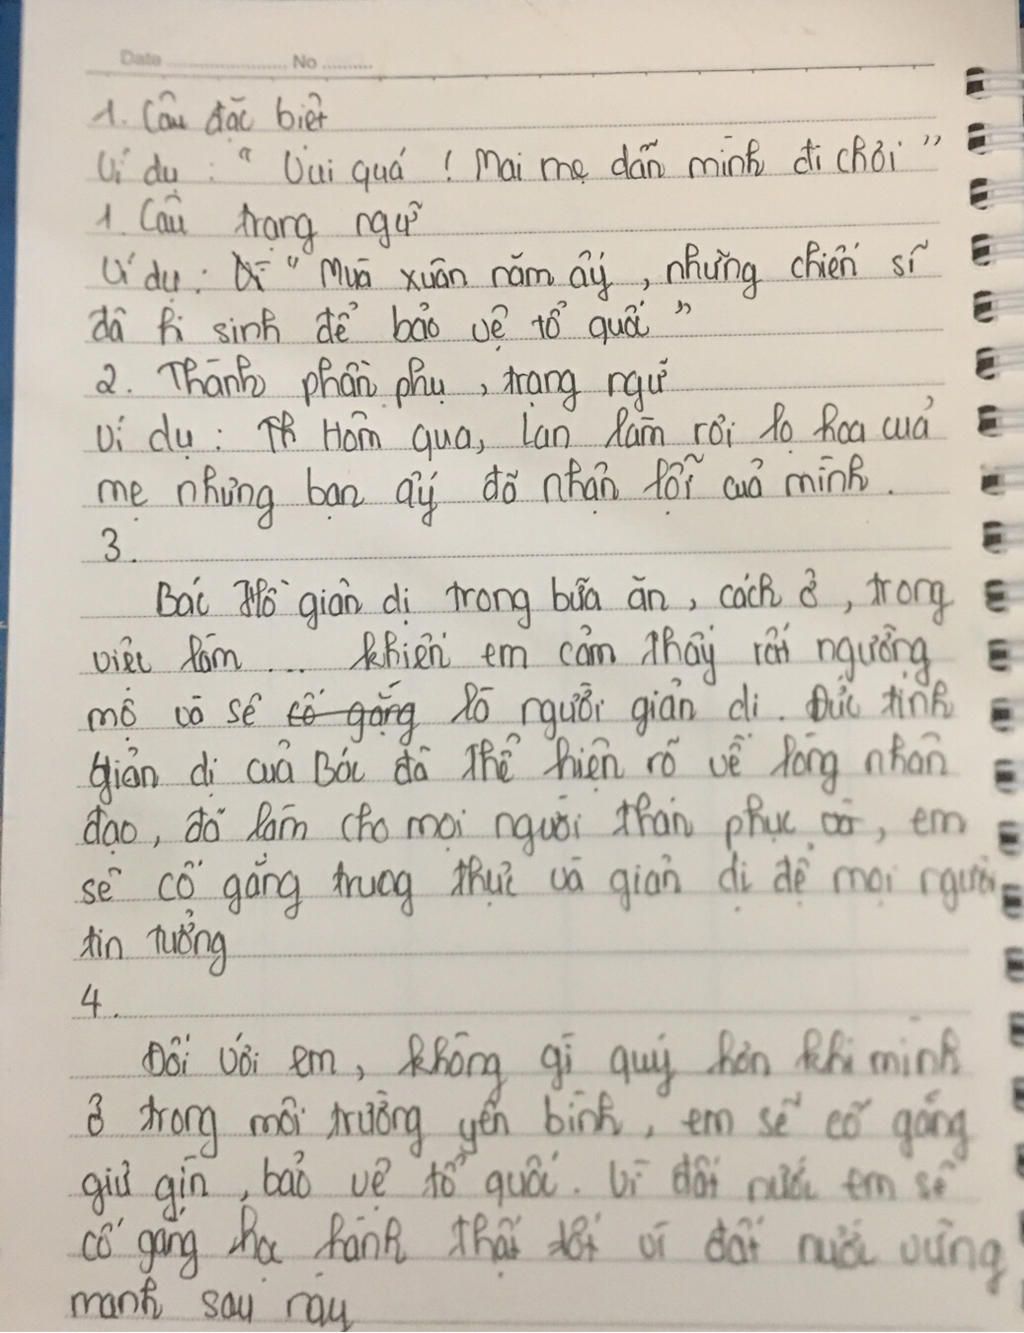 Date ............ No .........
1. Câu đặc biệt
Ví dụ : " Vui quá ! Mai mẹ dẫn mình đi chơi "
1. Câu trạng ngữ
Ví dụ : " Mùa xuân năm ấy , những chiến sĩ
đã hi sinh để bảo vệ tổ quốc "
2. Thành phần phụ , trạng ngữ
Ví dụ : Hôm qua, Lan làm rơi lọ hoa của
mẹ nhưng bạn ấy đã nhận lỗi của mình .
3.
Bác Hồ giản dị trong bữa ăn , cách ở , trong
việc làm ... khiến em cảm thấy rất ngưỡng
mộ và sẽ cố gắng là người giản dị . Đức tính
giản dị của Bác đã thể hiện rõ về lòng nhân
đạo , đã làm cho mọi người thán phục , em
sẽ cố gắng trung thực và giản dị để mọi người
tin tưởng
4.
Đối với em , không gì quý hơn khi mình
ở trong môi trường yên bình , em sẽ cố gắng
giữ gìn , bảo vệ tổ quốc . Vì đất nước em sẽ
cố gắng học hành thật tốt vì đất nước vững
mạnh sau này